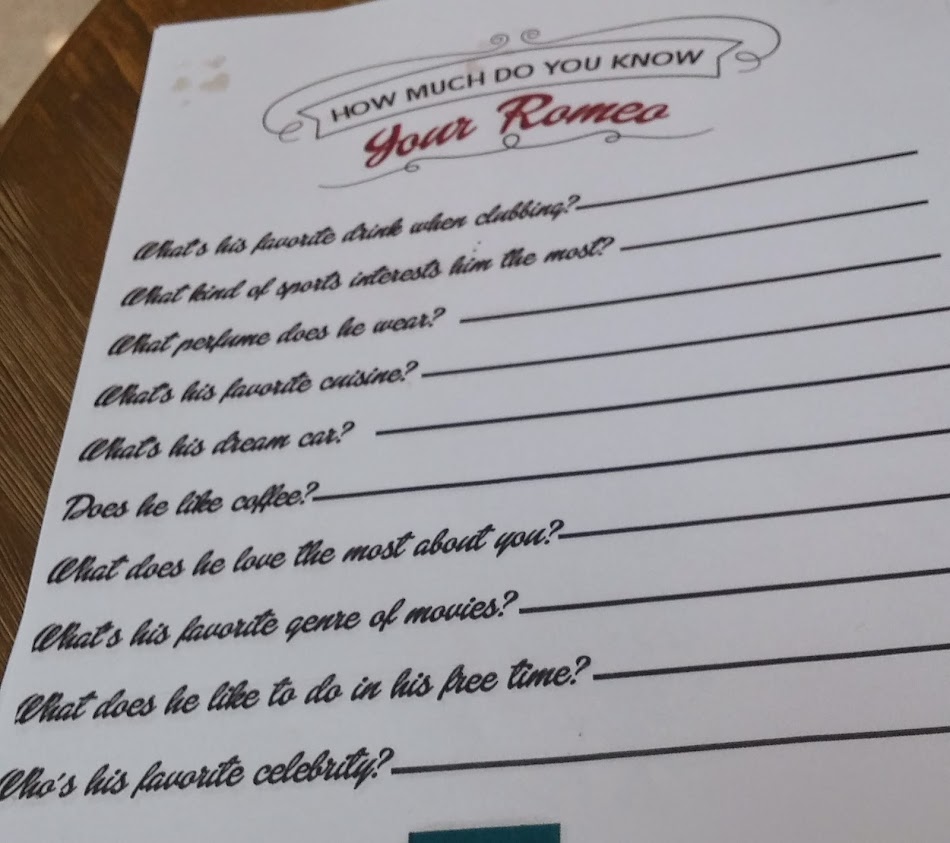 HOW MUCH DO YOU KNOW
Your Romeo
What's his favorite drink when clubbing?
What kind of sports interests him the most?
What perfume does he wear?
What's his favorite cuisine?
What's his dream car?
Does he like coffee?
What does he love the most about you?
What's his favorite genre of movies?
What does he like to do in his free time?
Who's his favorite celebrity?